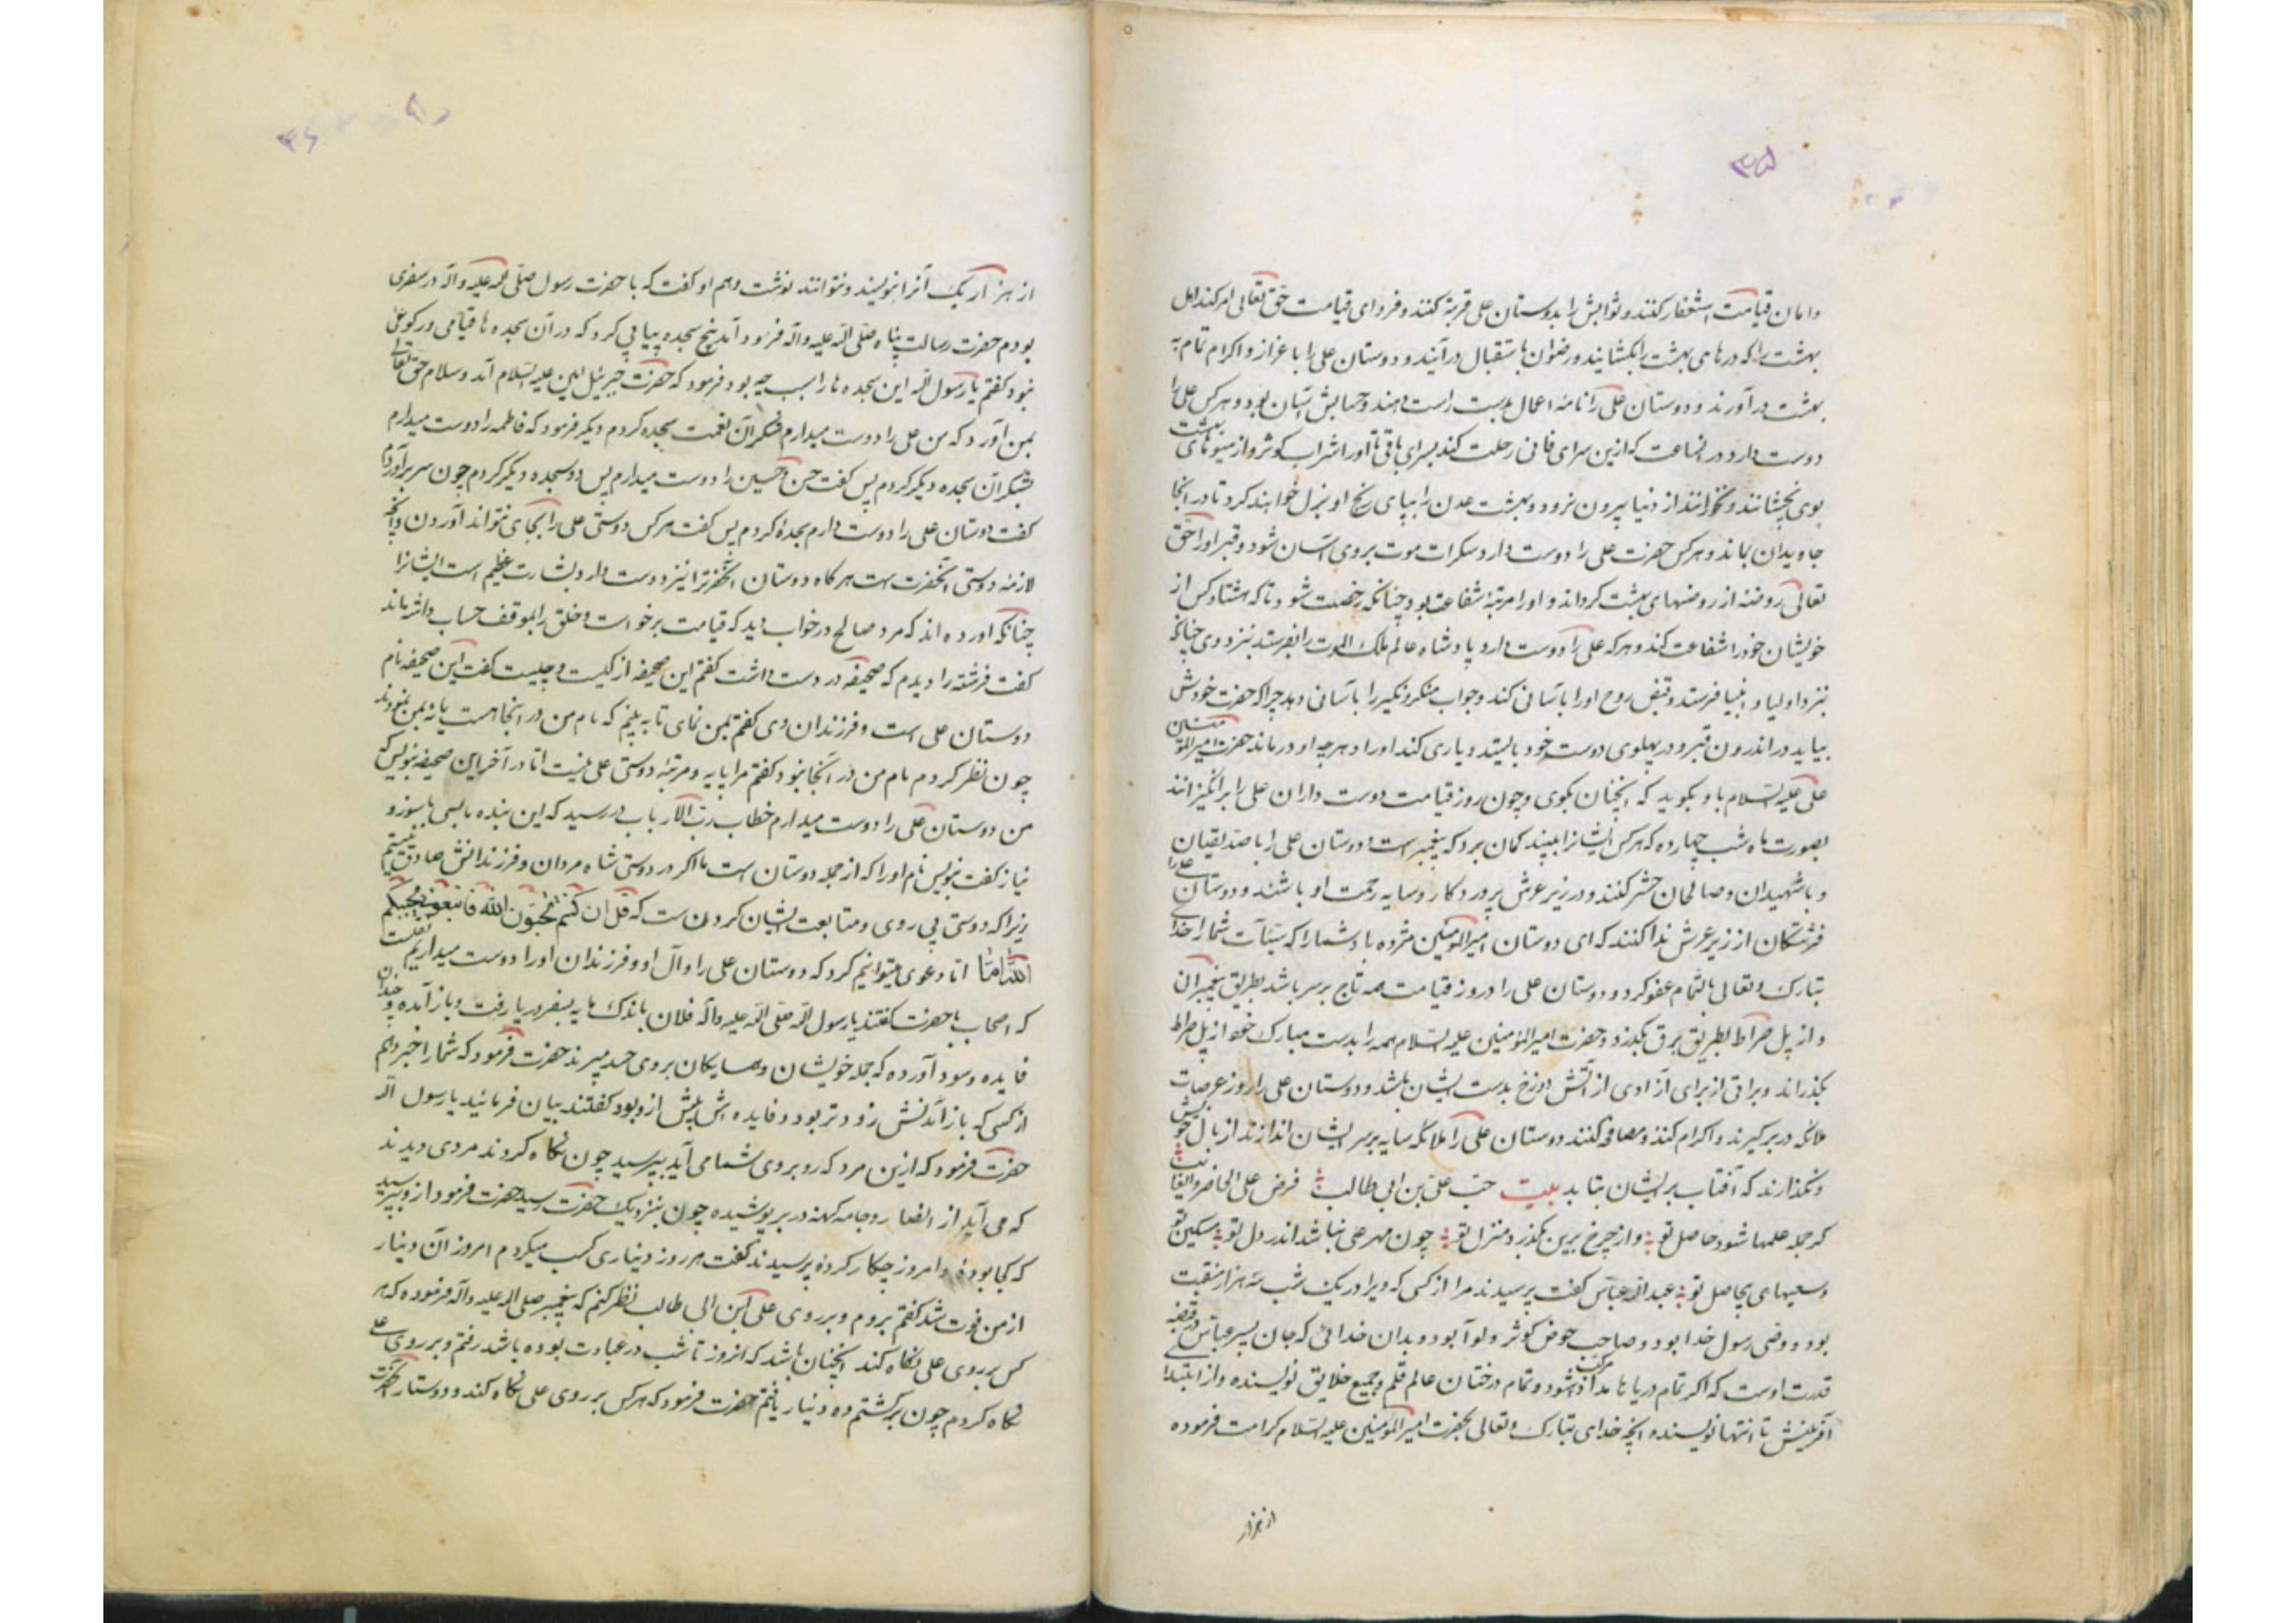 ۳۵
دامان قیامت استغفار کنند و ثوابش را بدوستان علی قربة کنند و فردای قیامت حق تعالی امر کند اهل
بهشت را که درهای بهشت را بکشایند و رضوان باستقبال درآیند و دوستان علی را باعزاز و اکرام تمام به
بهشت درآورند و دوستان علی را نامهٔ اعمال بدست راست دهند و حسابش آسان بود و هر کس علی را
دوست دارد در انساعت که ازین سرای فانی رحلت کند بسرای باقی تا او را شراب کوثر و از میوهای بهشت
بوی نچشانند و نخورانند از دنیا بیرون نرود و بهشت عدن را بپای رنج او نزل خواهند کرد تا در آنجا
جاویدان بماند و هر کس حضرت علی را دوست دارد سکرات موت بروی آسان شود و قبر او را حق
تعالی روضهٔ از روضهای بهشت کرداند و او را مرتبهٔ شفاعت بود چنانکه رخصت شود تا که هشتاد کس از
خویشان خود را شفاعت کند و هر که علی را دوست دارد پادشاه عالم ملک الموت را بفرستد بنزد وی چنانکه
نزد اولیا و انبیا فرستد و قبض روح او را بآسانی کند و جواب منکر و نکیر را بآسانی دهد چرا که حضرت خودش
بیاید در اندرون قبر و در پهلوی دوست خود بایستد و یاری کند او را و هر چه او درماند حضرت امیرالمؤمنین
علی علیه السلام باو بکوید که انچنان بکوی و چون روز قیامت دوست داران علی را برانکیزانند
بصورت ماه شب چهارده که هر کس ایشانرا ببیند کمان برد که پیغمبر است دوستان علی را با صدیقان
و با شهیدان و صالحان حشر کنند و در زیر عرش پروردکار و سایه رحمت او باشند و دوستان علی را
فرشتکان از زیر عرش ندا کنند که ای دوستان امیرالمؤمنین مژده باد شما را که سیّئات شما را خدای
تبارک و تعالی بالتمام عفو کرد و دوستان علی را در روز قیامت همه تاج بر سر باشد بطریق پیغمبران
و از پل صراط بطریق برق بکذرد و حضرت امیرالمؤمنین علیه السلام همه را بدست مبارک خود از پل صراط
بکذراند و براتی از برای آزادی از آتش دوزخ بدست ایشان باشد و دوستان علی را روز عرصات
ملائکه در بر کیرند و اکرام کنند و مصافحه کنند دوستان علی را ملائکه سایه بر سر ایشان اندازند از بال خویش
و نکذارند که آفتاب بر ایشان بتابد بیت حبّ علی بن ابی طالب فرض علی الحاضر و الغائب
کر جمله علمها شود حاصل تو و از چرخ برین بکذرد منزل تو چون مهر علی نباشد اندر دل تو مسکین تو
و سعیهای بیحاصل تو عبدالله عباس کفت پرسیدند مرا از کسی که ویرا در یک شب سه هزار منقبت
بود و وصی رسول خدا بود و صاحب حوض کوثر و لوا بود و بدان خدائی که جان پسر عباس در قبضه
قدرت اوست که اکر تمام دریاها مداد مرکب شود و تمام درختان عالم قلم و جمیع خلایق نویسنده و از ابتداء
آفرینش تا انتها نویسند آنچه خدای تبارک و تعالی بحضرت امیرالمؤمنین علیه السلام کرامت فرموده
از هزار
۳۶
از هزار یک آنرا ننویسند و نتوانند نوشت و هم او کفت که با حضرت رسول صلی الله علیه و آله در سفری
بودم حضرت رسالت پناه صلی الله علیه و آله فرود آمد پنج سجده پیاپی کرد که در آن سجده ها قیامی و رکوعی
نبود کفتم یا رسول الله این سجده ها را سبب چه بود فرمود که حضرت جبرئیل امین علیه السلام آمد و سلام حق تعالی
بمن آورد که من علی را دوست میدارم شکر آن نعمت سجده کردم دیکر فرمود که فاطمه را دوست میدارم
بشکر آن سجده دیکر کردم پس کفت حسن و حسین را دوست میدارم پس دو سجده دیکر کردم چون سر برآوردم
کفت دوستان علی را دوست دارم سجدهٔ کردم پس کفت هر کس دوستی علی را بجای نتواند آوردن و آنچه
لازمهٔ دوستی آنحضرت هست هر کاه دوستان آنحضرترا نیز دوست دارد بشارت عظیم است ایشانرا
چنانکه آورده اند که مرد صالح در خواب دید که قیامت برخواست و خلق را بموقف حساب داشته اند
کفت فرشتهٔ را دیدم که صحیفه در دست داشت کفتم این صحیفه از کیست و چیست کفت این صحیفه نام
دوستان علی است و فرزندان وی کفتم بمن نمای تا به بینم که نام من در آنجا هست یا نه بمن نمودند
چون نظر کردم نام من در آنجا نبود کفتم مرا پایه و مرتبهٔ دوستی علی نیست اما در آخر این صحیفه بنویس که
من دوستان علی را دوست میدارم خطاب رب الارباب در رسید که این بنده بابسی با سوز و
نیاز کفت بنویس نام او را که از جمله دوستان است ما اکر در دوستی شاه مردان و فرزندانش صادق نیستیم
زیرا که دوستی پی روی و متابعت ایشان کردن ست که قل ان کنتم تحبون الله فاتبعونی یحببکم
الله امّا اما دعوی میتوانیم کرد که دوستان علی را و آل او و فرزندان او را دوست میداریم نقلست
که اصحاب با حضرت کفتند یا رسول الله صلی الله علیه و آله فلان باندک مایه بسفر دریا رفت و باز آمده و چندان
فایده و سود آورده که جمله خویشان و همسایکان بروی حسد میبرند حضرت فرمود که شما را خبر دهم
از کسی که باز آمدنش زودتر بود و فایده اش بیش ازو بود کفتند بیان فرمائید یا رسول الله
حضرت فرمود که ازین مرد که رو بروی شما می آید بپرسید چون نکاه کردند مردی دیدند
که می آید از انصار و جامه کهنه در بر پوشیده چون بنزدیک حضرت رسید حضرت فرمود ازو بپرسید
که کجا بودهٔ و امروز چکار کردهٔ پرسیدند کفت هر روز دیناری کسب میکردم امروز آن دینار
از من فوت شد کفتم بروم و بر روی علی ابن ابی طالب نظر کنم که پیغمبر صلی الله علیه و آله فرموده که هر
کس بر روی علی نکاه کند آنچنان باشد که از روز تا شب در عبادت بوده باشد رفتم و بر روی علی
نکاه کردم چون برکشتم ده دینار یافتم حضرت فرمود که هر کس بر روی علی نکاه کند و دوستار آنحضرت